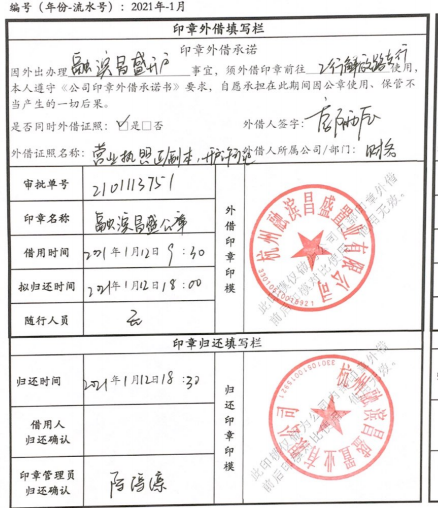 编号(年份-流水号):2021年-1月
印章外借填写栏
印章外借承诺
因外出办理 融滨昌盛开户 事宜,须外借印章前往 使用,
本人遵守《公司印章外借承诺书》要求,自愿承担在此期间因公章使用、保管不
当产生的一切后果。
是否同时外借证照:☑是□否 外借人签字:
外借证照名称:营业执照正副本,开户许可证 外借人所属公司/部门:财务
审批单号 2101113751
印章名称 融滨昌盛公章
借用时间 2021年1月12日9:30
拟归还时间 2021年1月12日18:00
随行人员 无
外借印章印模
杭州融滨昌盛置业有限公司
印章归还填写栏
归还时间 2021年1月12日18:30
借用人
归还确认
印章管理员
归还确认
归还印章印模
杭州融滨昌盛置业有限公司